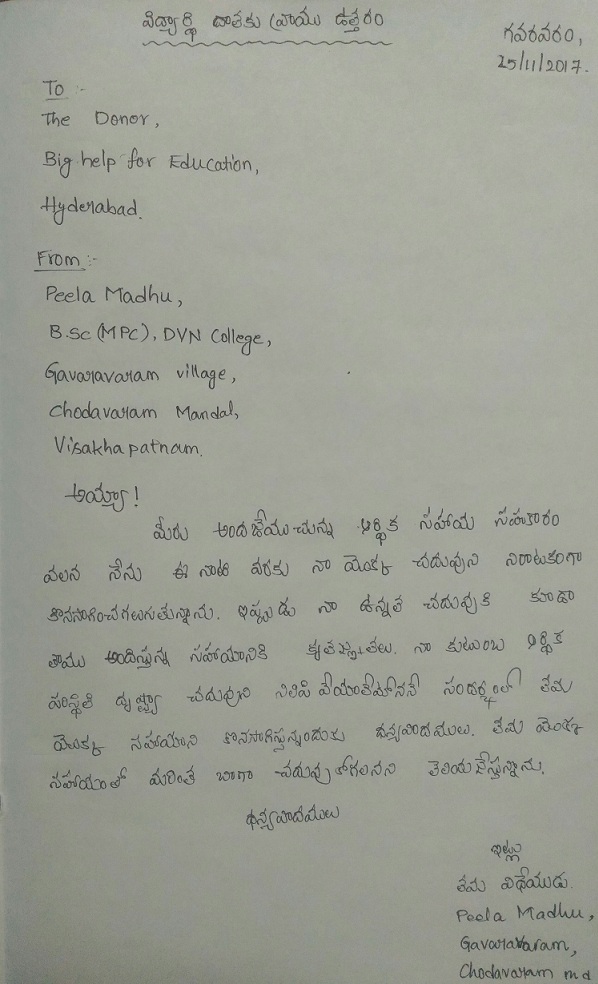 విద్యార్థి దాతకు వ్రాయు ఉత్తరం
గవరవరం,
25/11/2017.
To :-
The Donor,
Big help for Education,
Hyderabad.
From :-
Peela Madhu,
B.Sc (MPC), DVN College,
Gavaravaram village,
Chodavaram Mandal,
Visakhapatnam.
అయ్యా!
మీరు అందజేయుచున్న ఆర్థిక సహాయ సహకారం
వలన నేను ఈ నాటి వరకు నా యొక్క చదువుని నిరాటకంగా
కొనసాగించగలుగుతున్నాను. ఇప్పుడు నా ఉన్నత చదువుకి కూడా
తాము అందిస్తున్న సహాయానికి కృతజ్ఞతలు. నా కుటుంబ ఆర్థిక
పరిస్థితి దృష్ట్యా చదువుని నిలిపి వేయాలేమోననే సందర్భంలో తమ
యొక్క సహాయాని కొనసాగిస్తున్నందుకు ధన్యవాదములు. తమ యొక్క
సహాయంతో మరింత బాగా చదువుకోగలనని తెలియజేస్తున్నాను.
ధన్యవాదములు
ఇట్లు
తమ విధేయుడు.
Peela Madhu,
Gavaravaram,
Chodavaram md